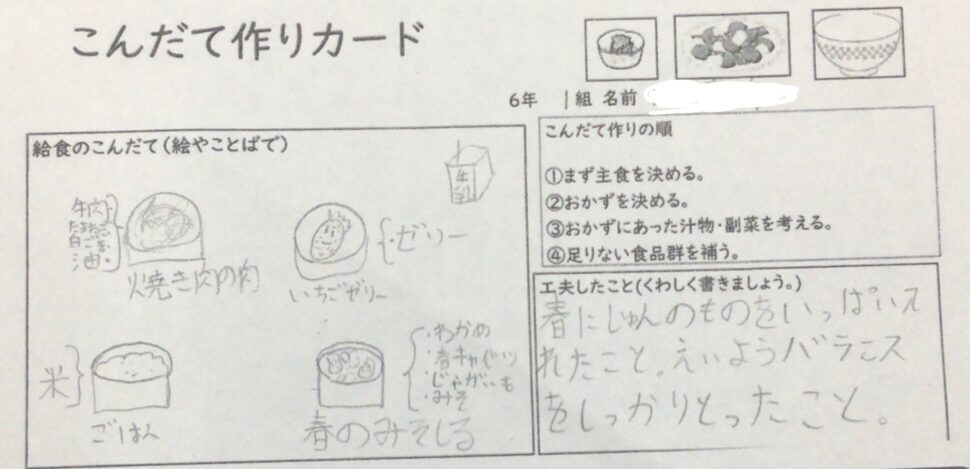 こんだて作りカード
6年 1組 名前
給食のこんだて(絵やことばで)
牛乳
牛肉・
たまねぎ・
白ごま・
油・
焼き肉の肉
・ゼリー
いちごゼリー
米
ごはん
・わかめ
・春キャベツ
・じゃがいも
・みそ
春のみそしる
こんだて作りの順
①まず主食を決める。
②おかずを決める。
③おかずにあった汁物・副菜を考える。
④足りない食品群を補う。
工夫したこと(くわしく書きましょう。)
春にしゅんのものをいっぱい入
れたこと。えいようバランス
をしっかりとったこと。